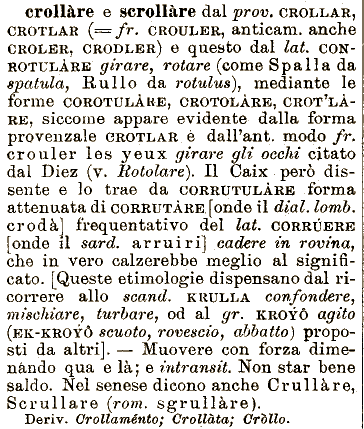 crollàre e scrollàre dal prov. CROLLAR,
CROTLAR (=fr. CROULER, anticam. anche
CROLER, CRODLER) e questo dal lat. CON-
ROTULÀRE girare, rotare (come Spalla da
spatula, Rullo da rotulus), mediante le
forme COROTULÀRE, CROTOLÀRE, CROT'LÀ-
RE, siccome appare evidente dalla forma
provenzale CROTLAR e dall'ant. modo fr.
crouler les yeux girare gli occhi citato
dal Diez (v. Rotolare). Il Caix però dis-
sente e lo trae da CORRUTULÀRE forma
attenuata di CORRUTÀRE [onde il dial. lomb.
crodà] frequentativo del lat. CORRÚERE
[onde il sard. arruiri] cadere in rovina,
che in vero calzerebbe meglio al signifi-
cato. [Queste etimologie dispensano dal ri-
correre allo scand. KRULLA confondere,
mischiare, turbare, od al gr. KROYÔ agito
(EK-KROYÔ scuoto, rovescio, abbatto) propo-
sti da altri]. — Muovere con forza dime-
nàndo qua e là; e intransit. Non star bene
saldo. Nel senese dicono anche Crullàre,
Scrullare (rom. sgrullàre).
Deriv. Crollaménto; Crollàta; Cròllo.